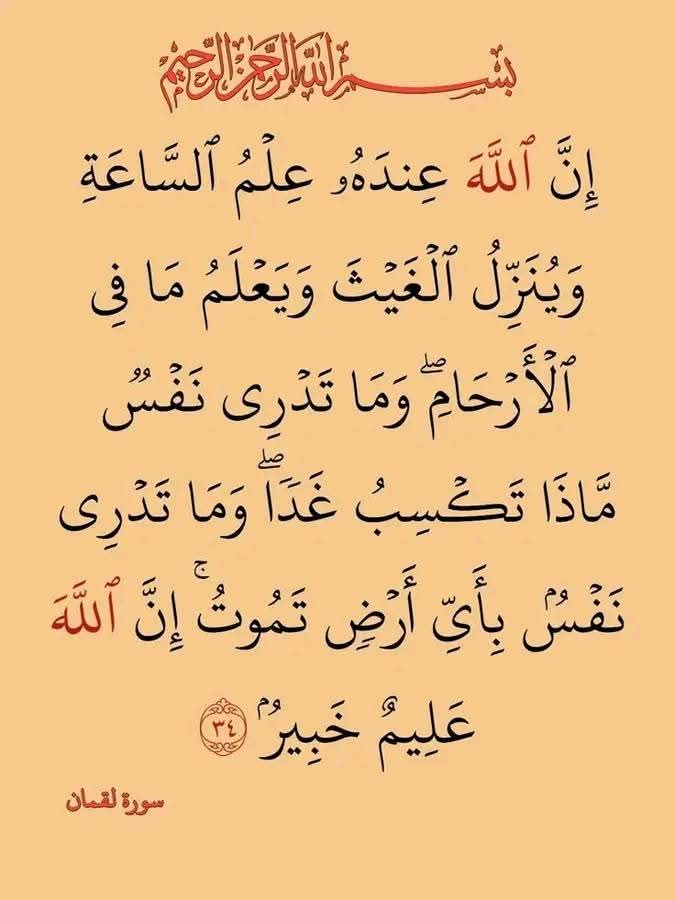 بسم الله الرحمن الرحيم
إِنَّ ٱللَّهَ عِندَهُۥ عِلْمُ ٱلسَّاعَةِ
وَيُنَزِّلُ ٱلْغَيْثَ وَيَعْلَمُ مَا فِى
ٱلْأَرْحَامِ ۖ وَمَا تَدْرِى نَفْسٌ
مَّاذَا تَكْسِبُ غَدًا ۖ وَمَا تَدْرِى
نَفْسٌۢ بِأَىِّ أَرْضٍ تَمُوتُ ۚ إِنَّ ٱللَّهَ
عَلِيمٌ خَبِيرٌۢ ٣٤
سورة لقمان